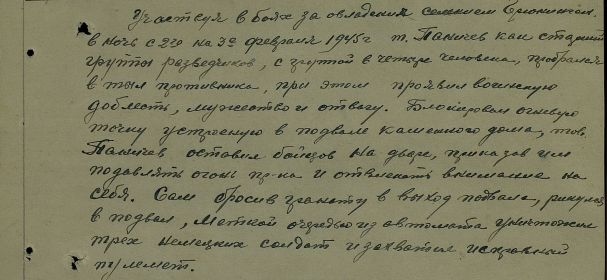 Участвуя в боях за овладения селением
в ночь с 2го на 3е февраля 1945г т. Паничев как старший
группы разведчиков, с группой в четыре человека, пробрался
в тыл противника, при этом проявил воинскую
доблесть, мужество и отвагу. Блокировал огневую
точку устроеную в подвале каменного дома, тов.
Паничев оставил бойцов на дворе, приказав им
подавлять огонь пр-ка и отвлекать внимание на
себя. Сам бросив гранату в выход подвала, ринулся
в подвал, меткой очередью из автомата уничтожил
трех немецких солдат и захватил исправный
пулемет.